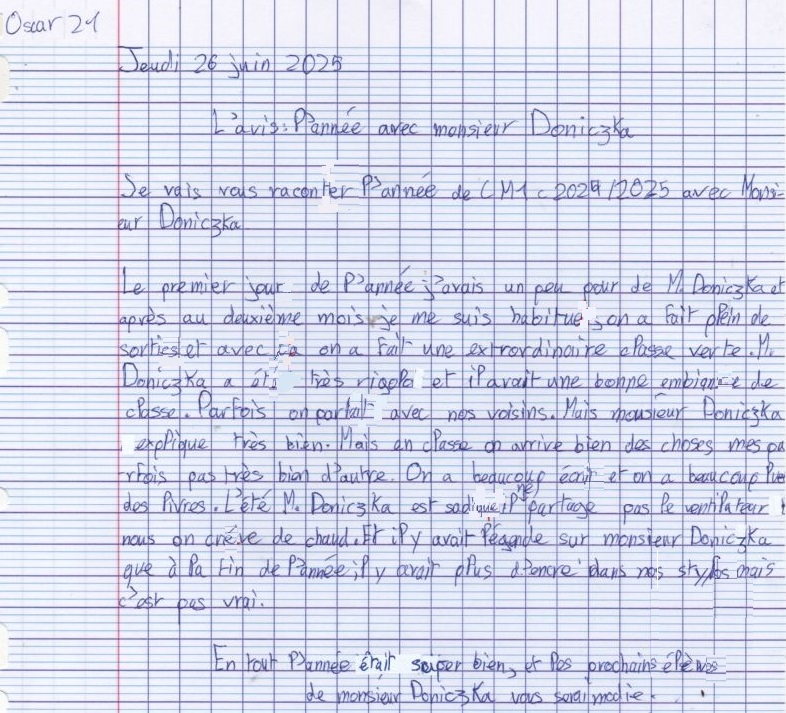 Oscar 21
Jeudi 26 juin 2025
L'avis : l'année avec monsieur Doniczka
Je vais vous raconter l'année de CM1 c 2024/2025 avec Monsi-
eur Doniczka
Le premier jour de l'année j'avais un peu pour de M. Doniczka et
après au deuxième mois je me suis habitué, on a fait plein de
sorties et avec ça on a fait une extrordinaire classe verte. M.
Doniczka a été très rigola et il avait une bonne embiance de
classe. Parfois on parlait avec nos voisins. Mais monsieur Doniczka
explique très bien. Mais en classe on arrive bien des choses mes pa
-rfois pas très bien d'autre. On a beaucoup écrit et on a beaucoup lu
des livres. L'été M. Doniczka est sadique, il ne partage pas le ventilateur
nous on crève de chaud. Et il y avait légende sur monsieur Doniczka
que à la fin de l'année, il y avait plus d'encre dans nos stylos mais
c'est pas vrai.
En tout l'année était super bien, et les prochains élèves
de monsieur Doniczka vous serai